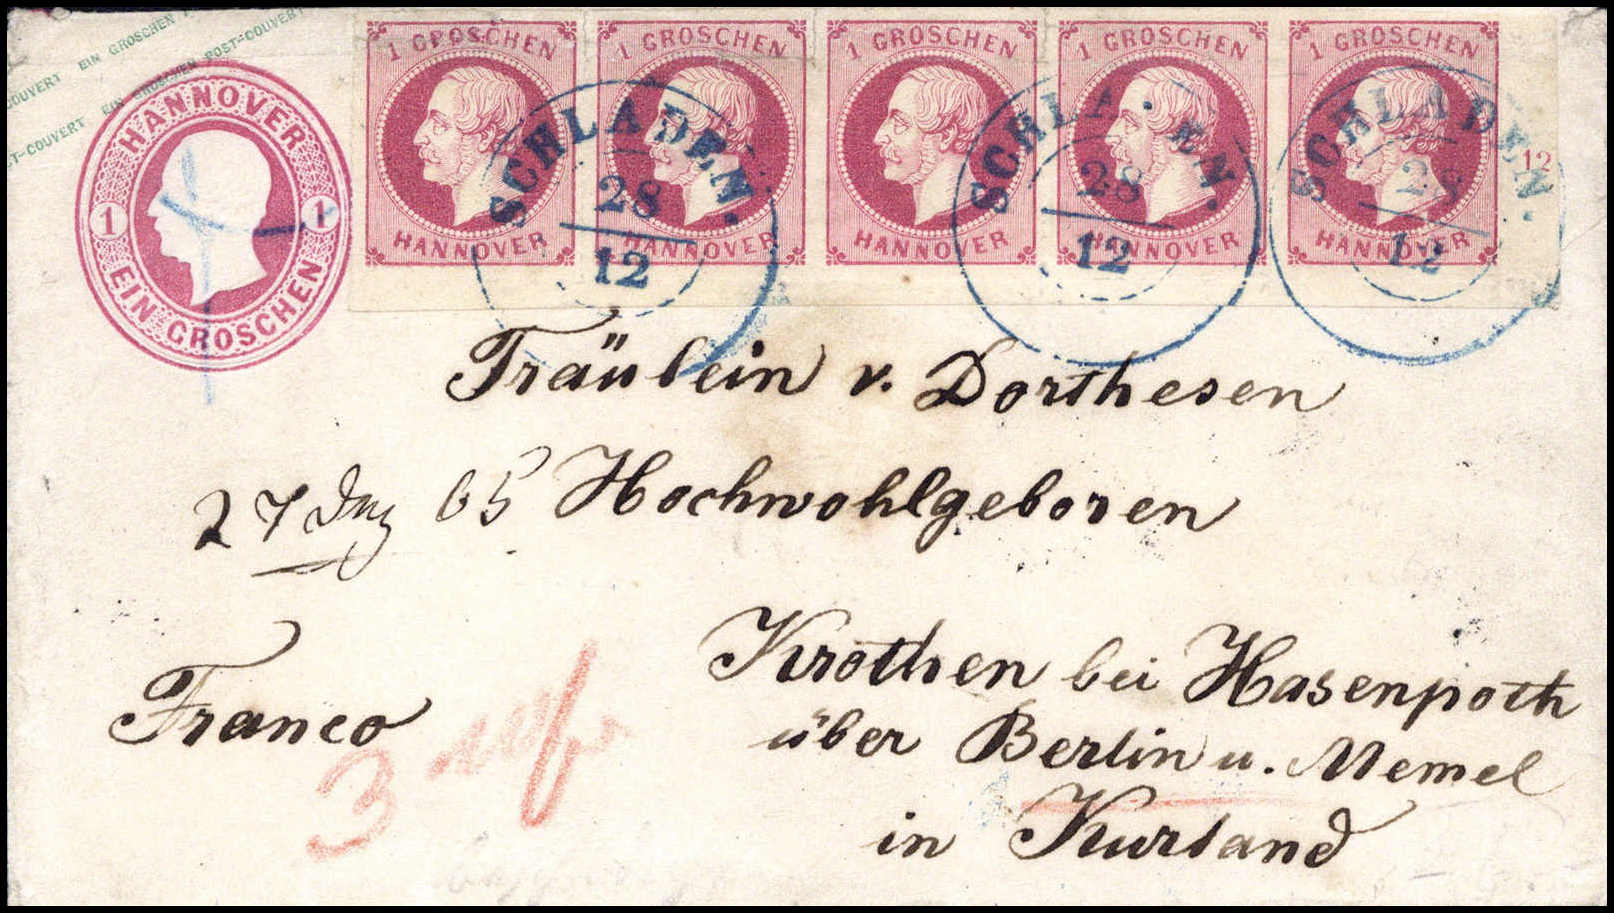 EIN GROSCHEN POST-COUVERT
COUVERT EIN GROSCHEN
ST-COUVERT EIN GROSCHEN POST-COUVERT
HANNOVER
1 1
EIN GROSCHEN
1 GROSCHEN 1 GROSCHEN 1 GROSCHEN 1 GROSCHEN 1 GROSCHEN
HANNOVER HANNOVER HANNOVER HANNOVER HANNOVER
12
SCHLADEN. SCHLADEN. SCHLADEN.
28 28 28
12 12 12
Fräulein v. Dorthesen
27 65 Hochwohlgeboren
Krothen bei Hasenpoth
Franco
über Berlin u. Memel
3
in Kurland